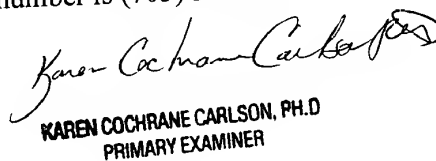 number is (703)
Karen Cochrane Carlson
KAREN COCHRANE CARLSON, PH.D
PRIMARY EXAMINER